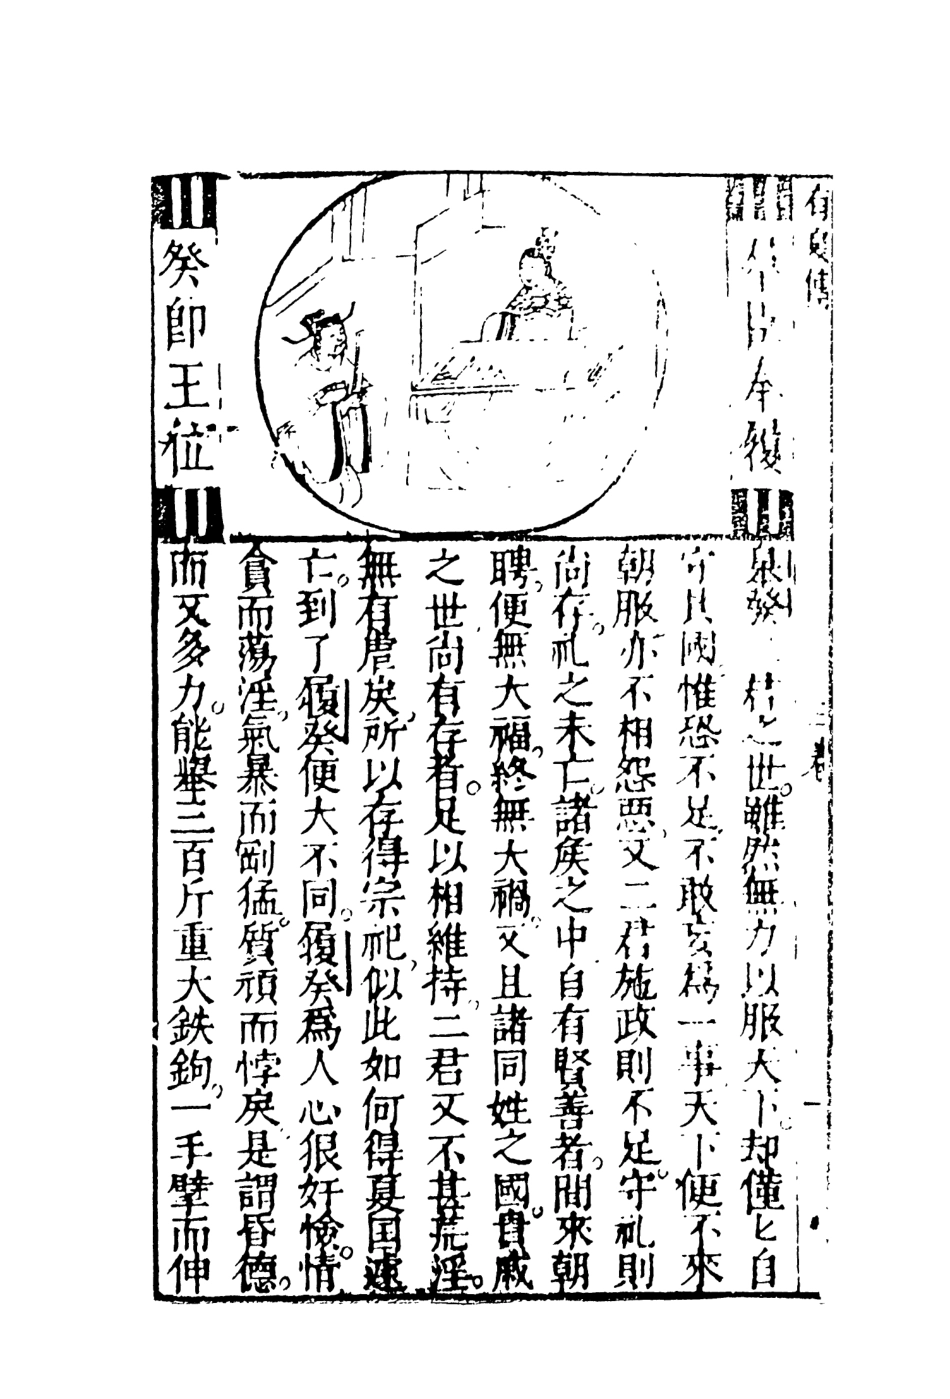 有夏傳
三卷
一
奉
癸即王位
臯發二君之世。雖然無力以服天下。却僅匕自
守其國惟恐不足不敢妄為一事天下便不來
朝服亦不相怨惡又二君施政則不足。守礼則
尚存。礼之未亡。諸矦之中自有賢善者。間來朝
聘。便無大福。終無大禍。又且諸同姓之國。貴戚
之世尚有存者。足以相維持。二君又不甚荒淫。
無有虐戾。所以存得宗祀。似此如何得夏国速
亡。到了履癸便大不同。履癸爲人心狠好憸。情
貪而蕩淫。氣暴而剛猛。質頑而悖戾是謂昏德。
而又多力。能舉三百斤重大鉄鉤。一手擘而伸